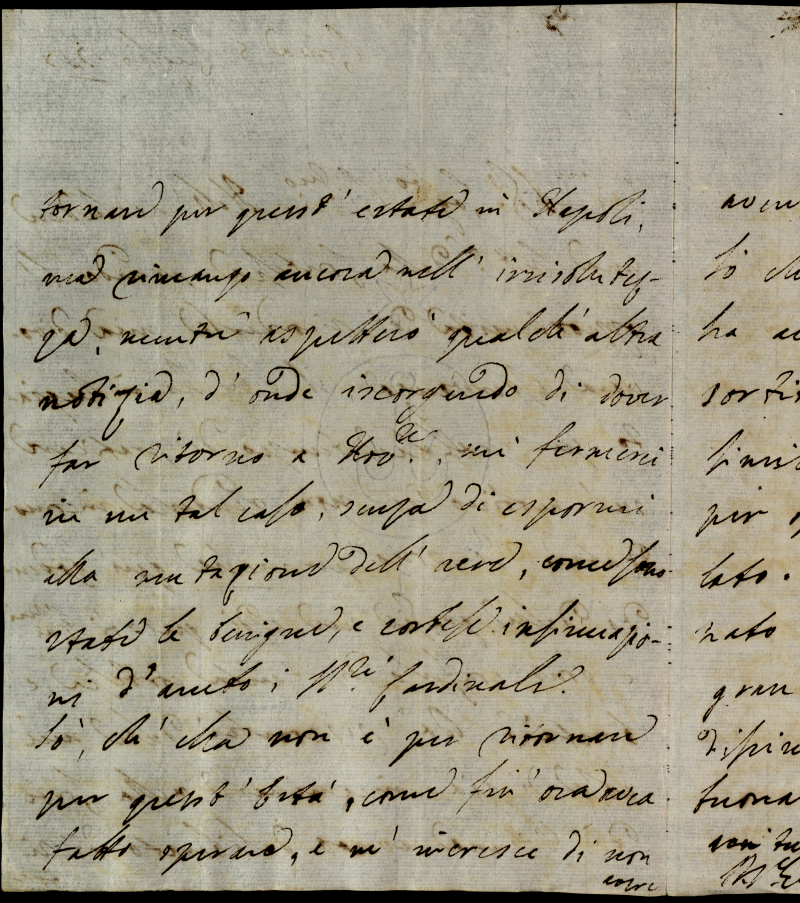 tornare per quest' estate in Napoli,
ma rimango ancora nell' irrisolutez-
za, mentre aspetterò qualch' altra
notizia, d' onde iscorgendo di dover
far ritorno a mi fermerei
in un tal caso, senza di espormi
alla mutazione dell' aere, come sono
state le benigne, e cortesi insinuazio-
ni d' ambo i Sri Cardinali.
Sò, ch' ella non è per ritornare
per quest' està, come fin' ora aveva
fatto sperare, e m' incresce di non
aver
aven
sò ch
ha ac
sorti
simil
per
lato.
nato
gran
dispia
buona